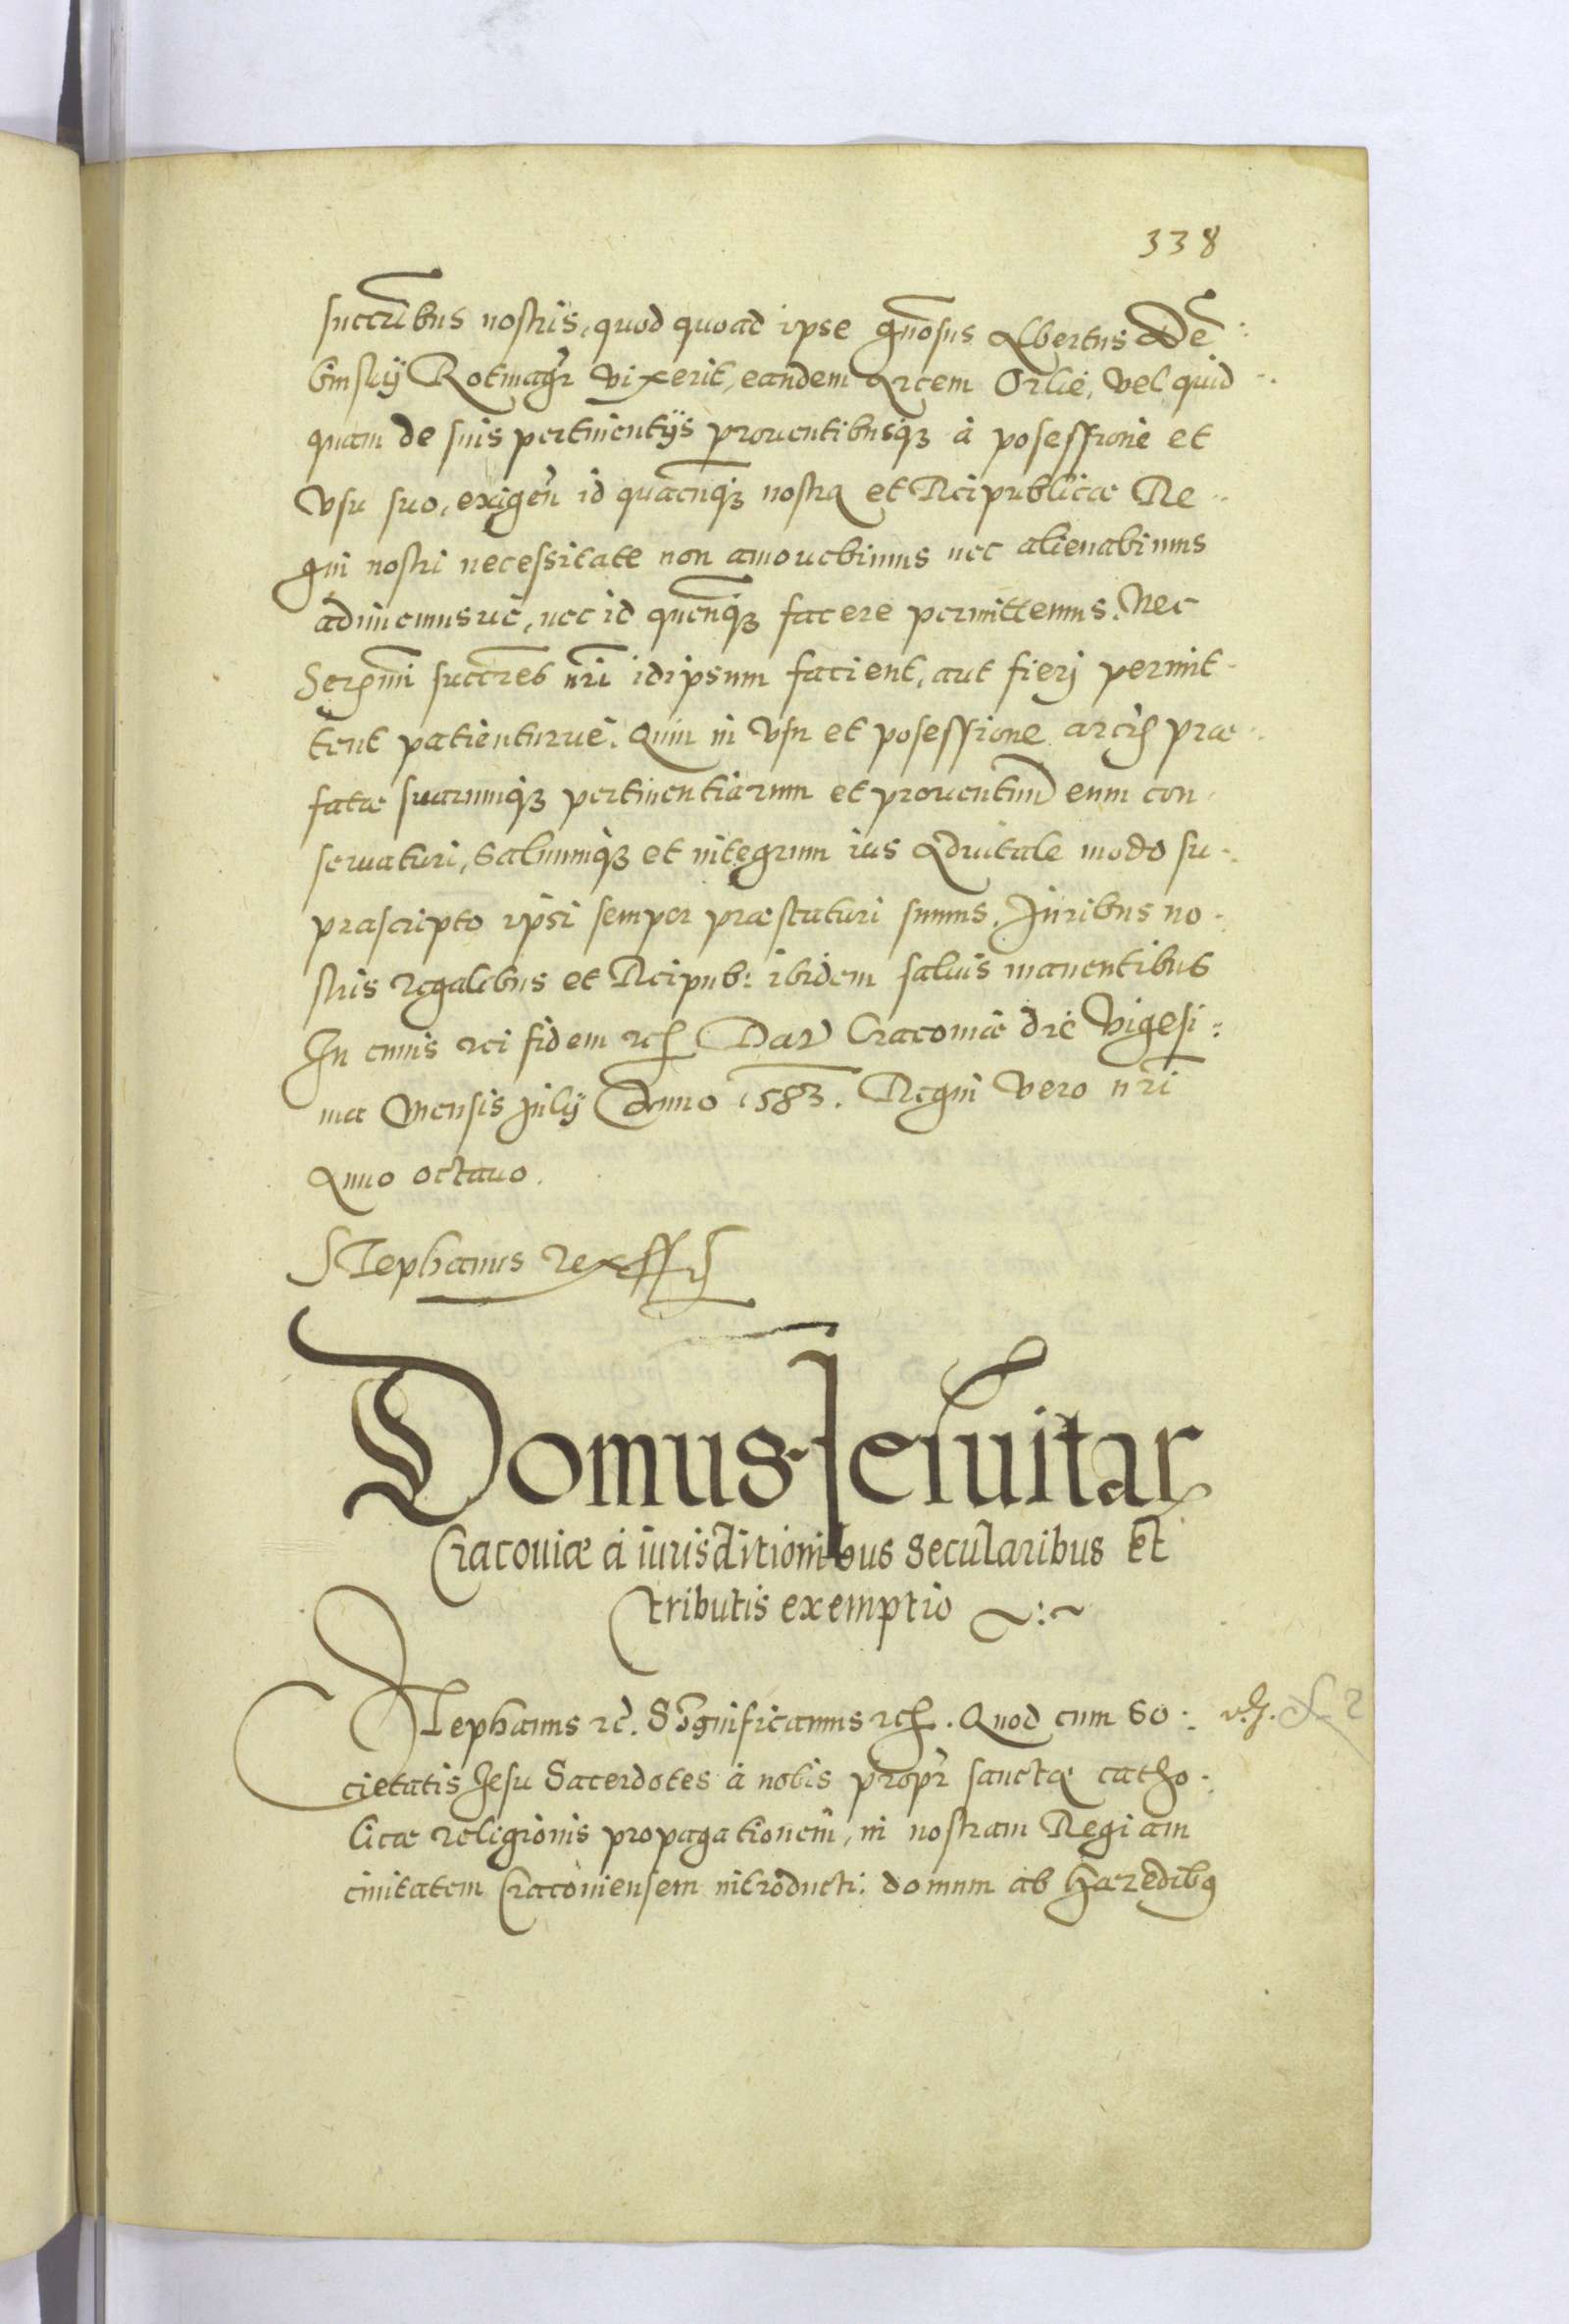 338
succribus nostris, quod quoad ipse gnosus Albertus De:
binskij Rotmagr vixerit, eandem Arcem Orlie, vel quid
quam de suis pertinentijs prouentibusq3 à posessione et
vsu suo, exigen id quacunq3 nostra et Reipublicæ Re
gni nostri necessitate non amouebimus nec alienabimus
adimemusué, nec id quenq3 facere permittemus. Nec
Sermi succres nri idipsum facient, aut fierj permit
tent patienturué. Quin in vsu et posessione arcis præ
fatæ suarumq3 pertinentiarum et prouentuu eum con
seruaturi, saluumq3 et integrum ius Aduitale modo su
prascripto ipsi semper præstaturi sumus. Juribus no
stris regalibus et Reipub: ibidem saluis manentibus
In cuius rei fidem etc Dat Cracouiæ die Vigesi:
ma Mensis Julij Anno 1583. Regni vero nri
Anno octauo.
Stephanus Rex ss
Domus Iesuitar
Cracouiæ á iurisditionibus Secularibus Et
tributis exemptio ~:~
Stephanus etc. Significamus etc. Quod cum So:
cietatis Jesu Sacerdotes à nobis propr sanctæ catho:
licæ religionis propagationem, in nostram Regiam
ciuitatem Cracouiensem introducti: domum ab Hæredibus